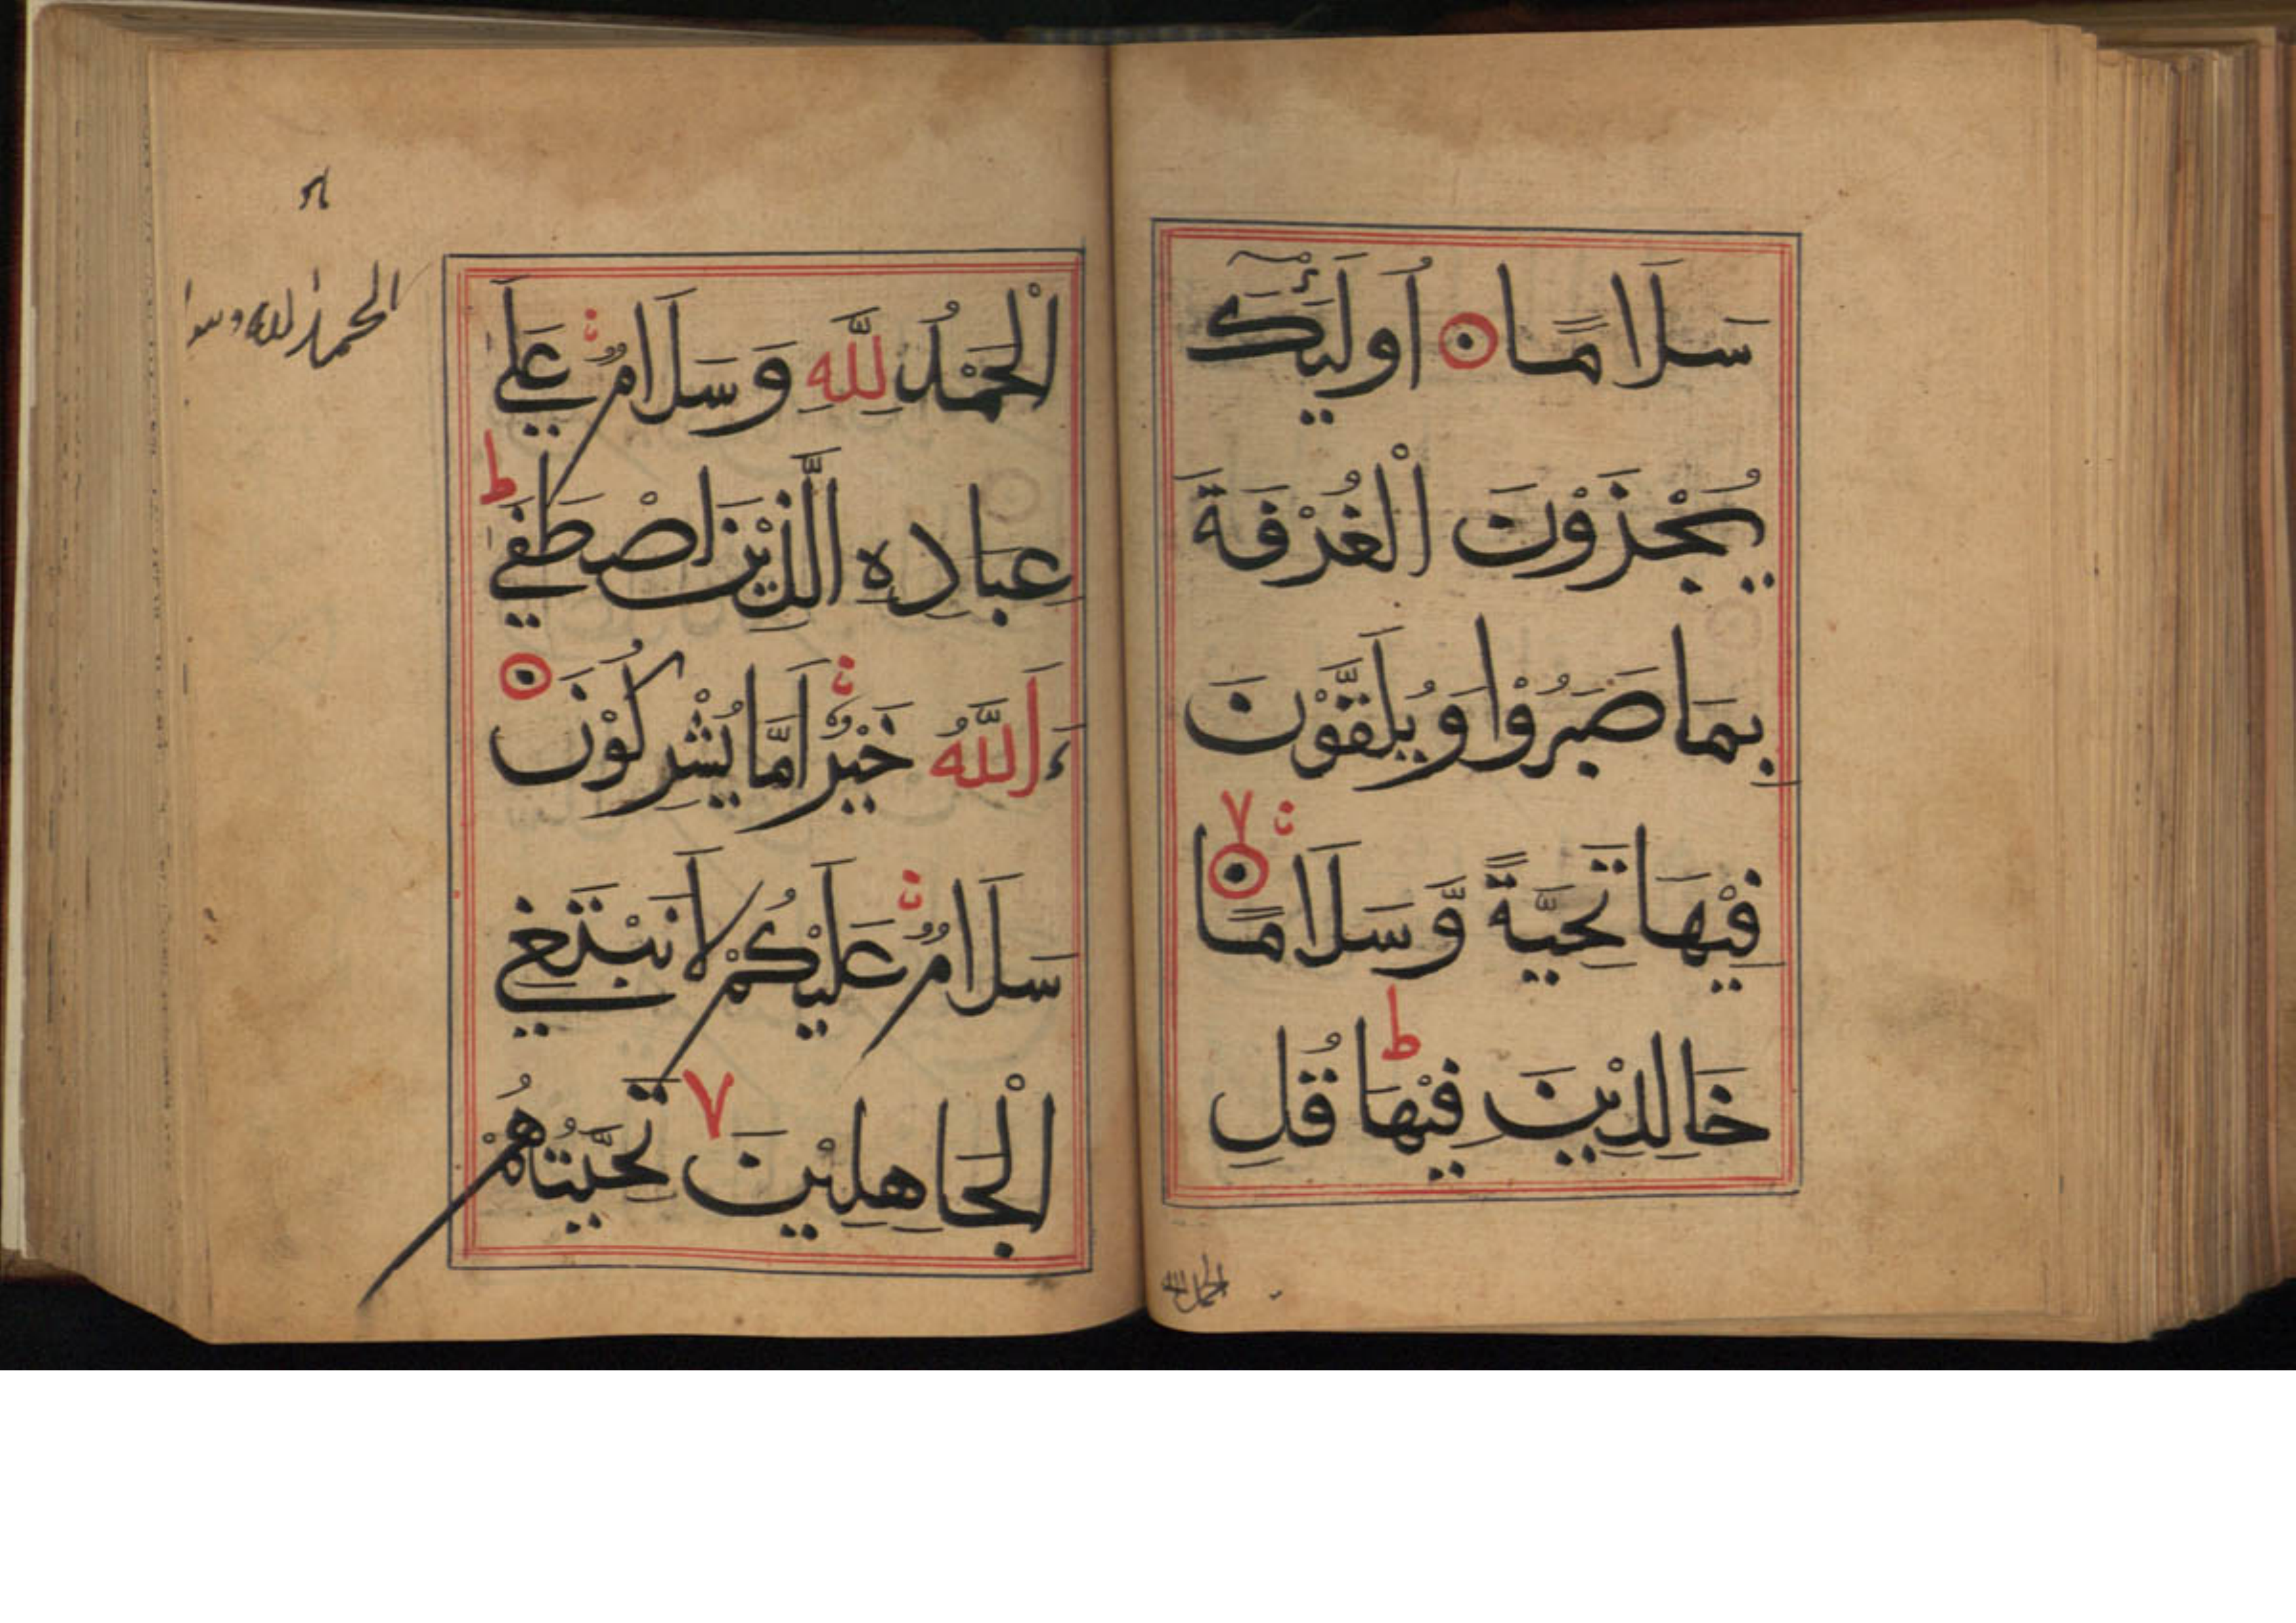 سَلَامًا اُولَٰٓئِكَ
يُجْزَوْنَ الْغُرْفَةَ
بِمَا صَبَرُوْا وَيُلَقَّوْنَ
فِيْهَا تَحِيَّةً وَّسَلَامًا
خَالِدِيْنَ فِيْهَا قُلِ
الحمد لله
الْحَمْدُ لِلّٰهِ وَسَلَامٌ عَلَي
عِبَادِهِ الَّذِيْنَ اصْطَفَي
ءَاَللّٰهُ خَيْرٌ اَمَّا يُشْرِكُوْنَ
سَلَامٌ عَلَيْكُمْ لَا نَبْتَغِي
الْجَاهِلِيْنَ تَحِيَّتُهُمْ
الحمد لله وسوا